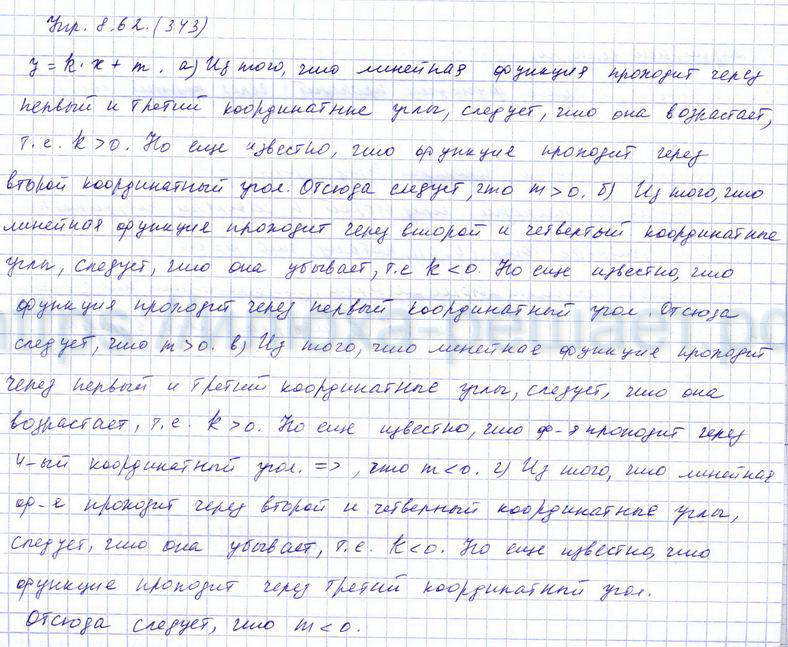 Упр. 8.62. (343)
y = k · x + m. а) Из того, что линейная функция проходит через
первый и третий координатные углы, следует, что она возрастает,
т.е. k > 0. Но еще известно, что функция проходит через
второй координатный угол. Отсюда следует, что m > 0. б) Из того, что
линейная функция проходит через второй и четвертый координатные
углы, следует, что она убывает, т.е k < 0. Но еще известно, что
функция проходит через первый координатный угол. Отсюда
следует, что m > 0. в) Из того, что линейная функция проходит
через первый и третий координатные углы, следует, что она
возрастает, т.е. k > 0. Но еще известно, что ф-я проходит через
4-ый координатный угол. => , что m < 0. г) Из того, что линейная
ф-я проходит через второй и четверный координатные углы,
следует, что она убывает, т.е. k < 0. Но еще известно, что
функция проходит через третий координатный угол.
Отсюда следует, что m < 0.